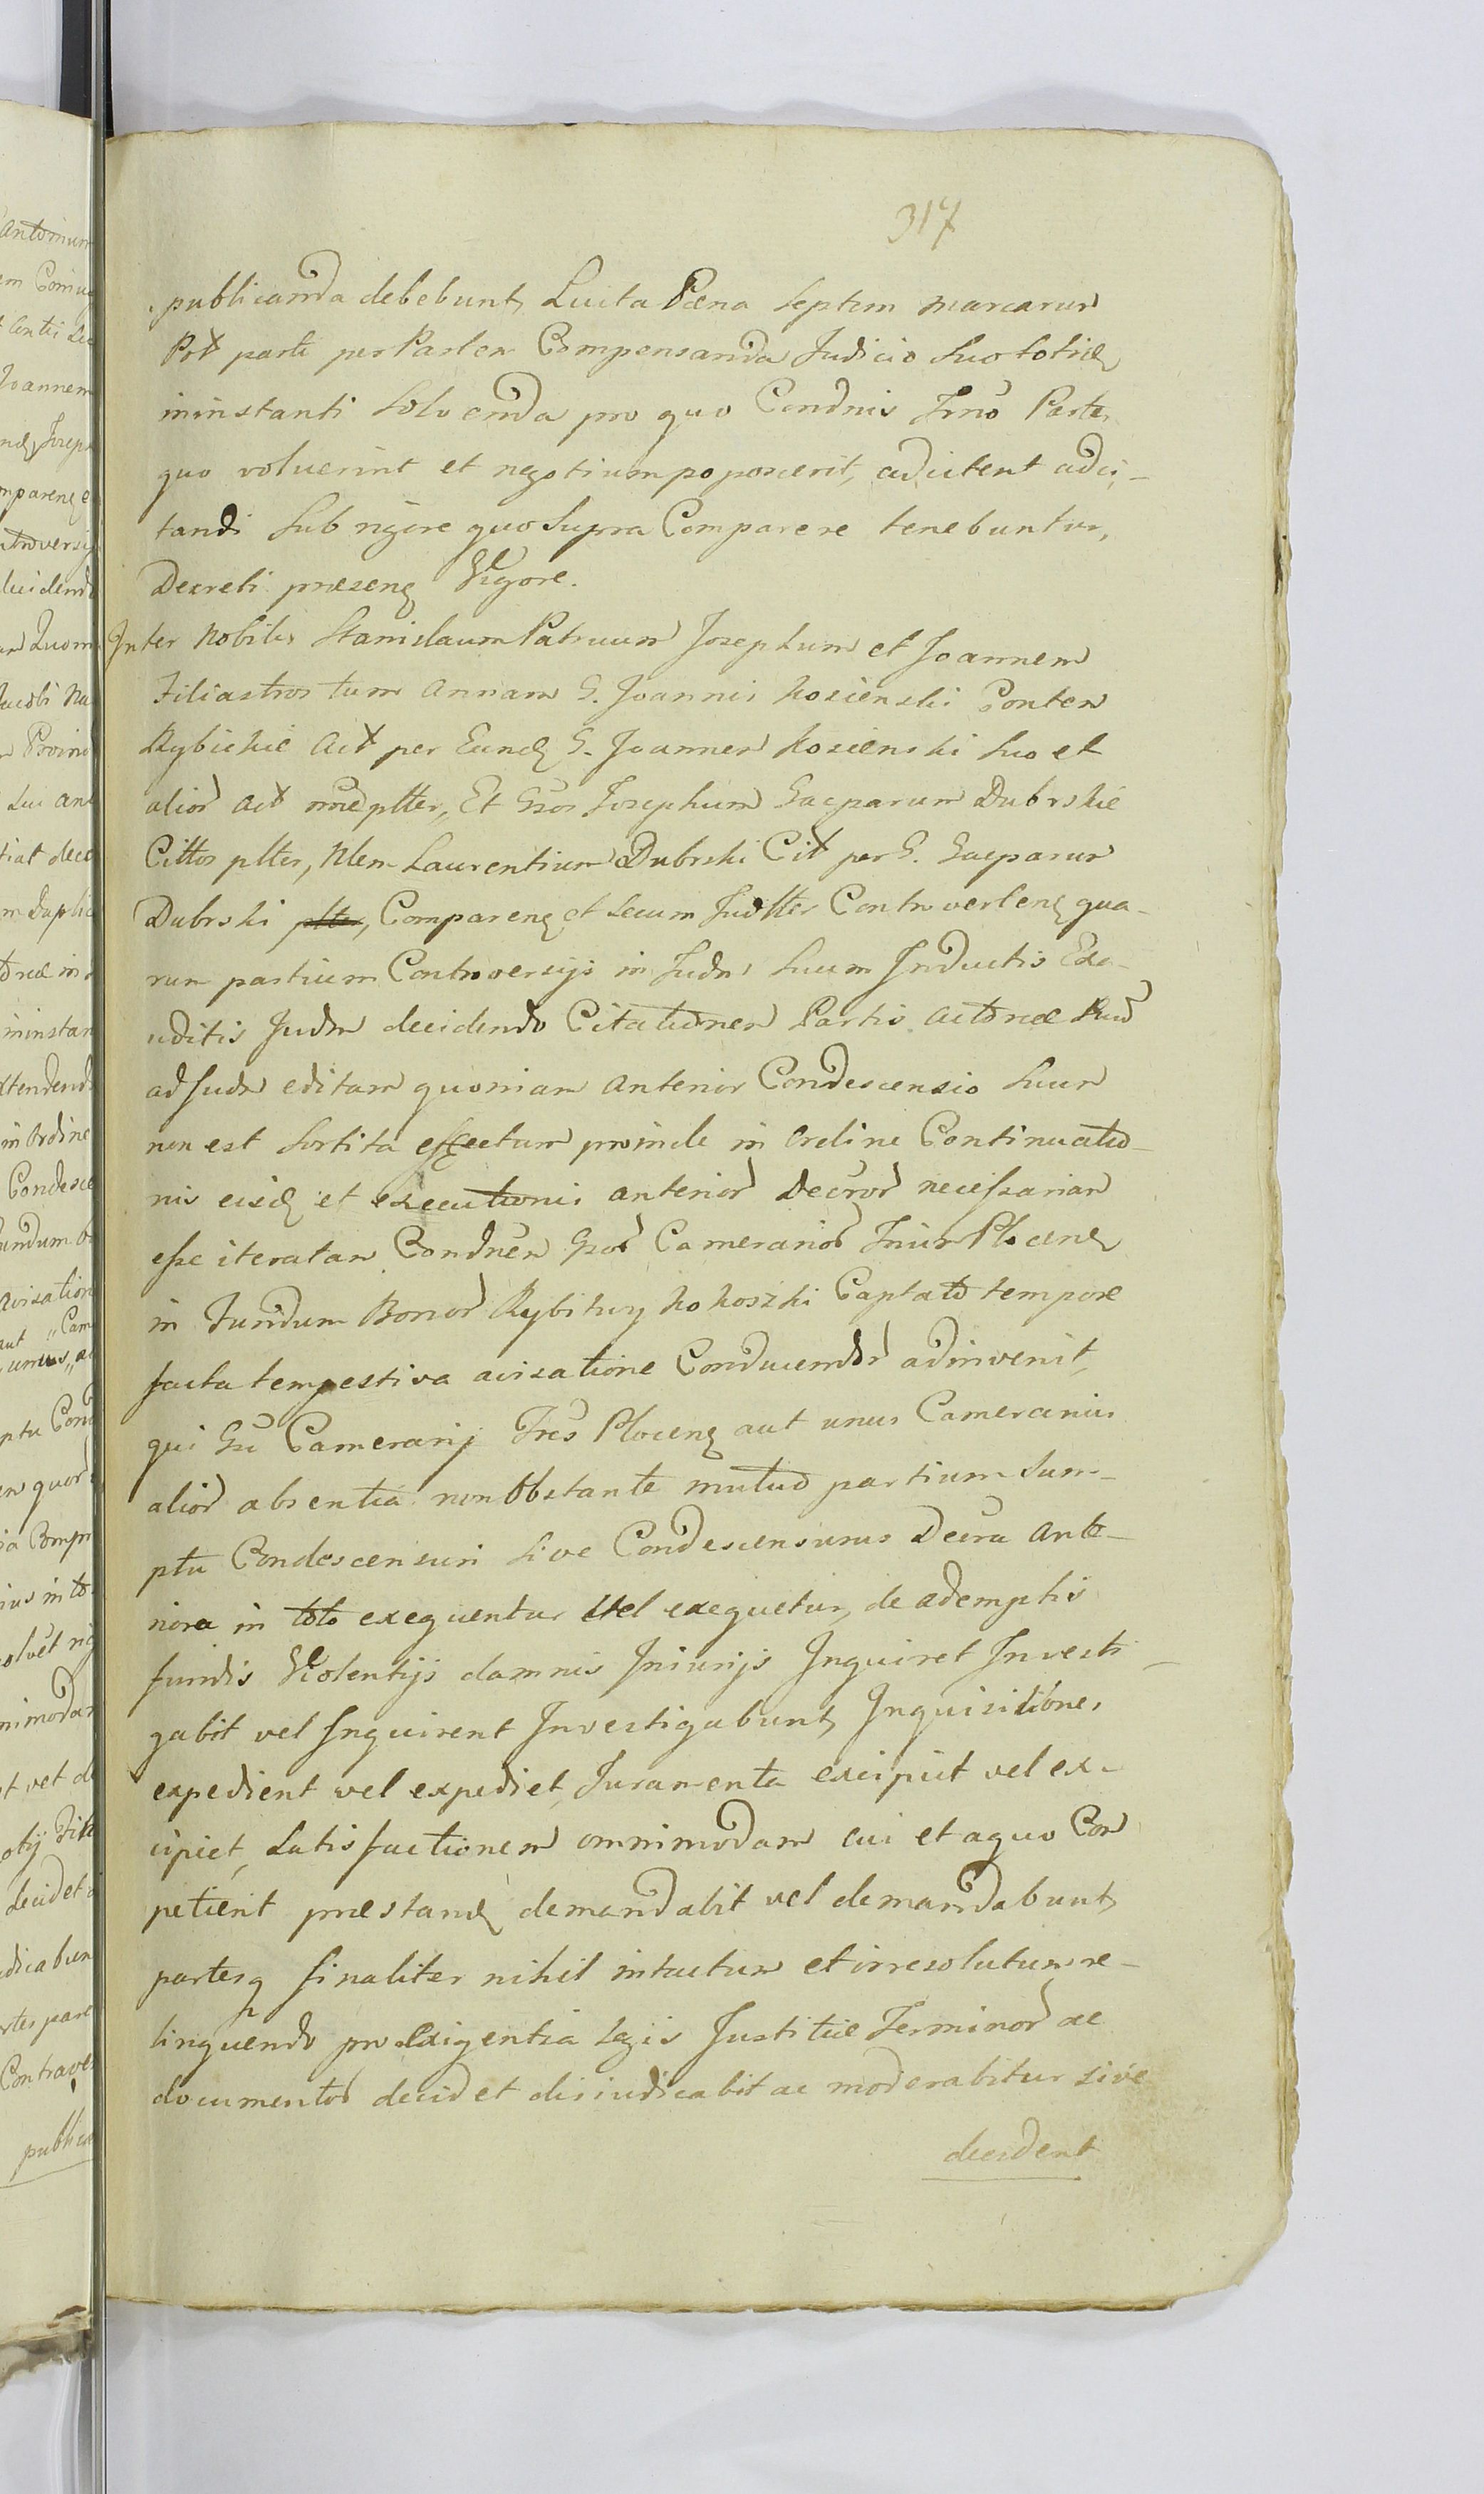 317
publicanda debebunt, Luita Pæna Septem marcarum
Prt parti per Partem Compensanda Judicio Suo totid
ininstanti Solvenda pro quo Condnis Trno Partes
quo voluerint et negotium poposcerit, adcitent adci-
tandi Sub rigore quo Supra Comparere tenebuntur,
Decreti præsen Vigore.
Inter Nobiles Stanislaum Patruum Josephum et Joannem
Filiastros tum Annam G. Joannis Kosienski Conten
Rybickie Act per Eund G. Joannem Kosienski Suo et
alior Act nne pltter, Et Gsos Josephum Gasparum Dubrskie
Cittos pltter, Nlem Laurentium Dubrski Cit per G. Gasparum
Dubrski plter, Comparen et Secum Judtter Controverten qua-
rum partium Controversijs in Judm Suum Inductis Exa-
uditis Judm decidendo Citationem Partis Actoreæ
ad Judm editam quoniam anterior Condescensio Suum
non est Sortita effectum proinde in Ordine Continuatio-
nis eisd et executionis anterior Decror necessariam
esse iteratam Condnem Gsor Camerarior Trium Plocen
in Fundum Bonor Rybitwy Kokoszki Captato tempore
facta tempestiva avisatione Conducendor adinvenit,
qui Gsi Camerarij Tres Plocen aut unus Camerarius
alior absentia non Obstante mutuo partium Sum-
ptu Condescensuri Sive Condescensurus Decra Ante-
riora in toto exequentur Vel exequetur, de ademptis
fundis Violentijs damnis Iniurijs Inquiret Investi-
gabit vel Inquirent Investigabunt, Inquisitiones
expedient vel expediet, Juramenta excipiet vel ex-
cipiet, Satisfactionem omnimodam cui et aquo Com
petierit præstand demandabit vel demandabunt,
partesq finaliter nihil intactum et irresolutum re-
linquendo pro Exigentia Legis Justitiæ Terminor ac
documentor decidet diiudicabit ac moderabitur sive
decident